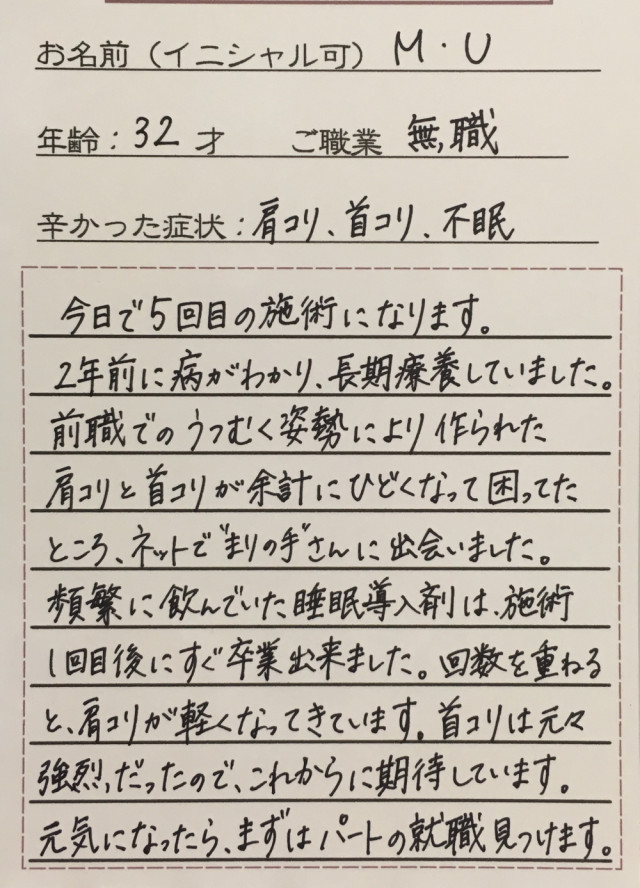 お名前（イニシャル可） M・U
年齢：32才　ご職業 無職
辛かった症状：肩コリ、首コリ、不眠
今日で5回目の施術になります。
2年前に病がわかり、長期療養していました。
前職でのうつむく姿勢により作られた
肩コリと首コリが余計にひどくなって困ってた
ところ、ネットで"まりの手"さんに出会いました。
頻繁に飲んでいた睡眠導入剤は、施術
1回目後にすぐ卒業出来ました。回数を重ねる
と、肩コリが軽くなってきています。首コリは元々
強烈だったので、これからに期待しています。
元気になったら、まずはパートの就職見つけます。